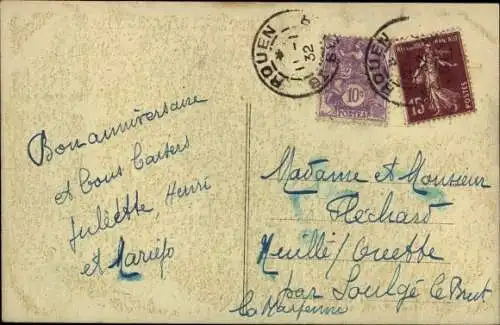 Bon anniversaire
et bons baisers
Juliette, Henri
et Mariefo
ROUEN
* 11 -1
32
10c
POSTES
ROUEN
REPUBLIQUE FRANÇAISE
15c
POSTES
Madame et Monsieur
Fléchard
Neuillé/Ouette
par Soulgé le Bruant
la Mayenne